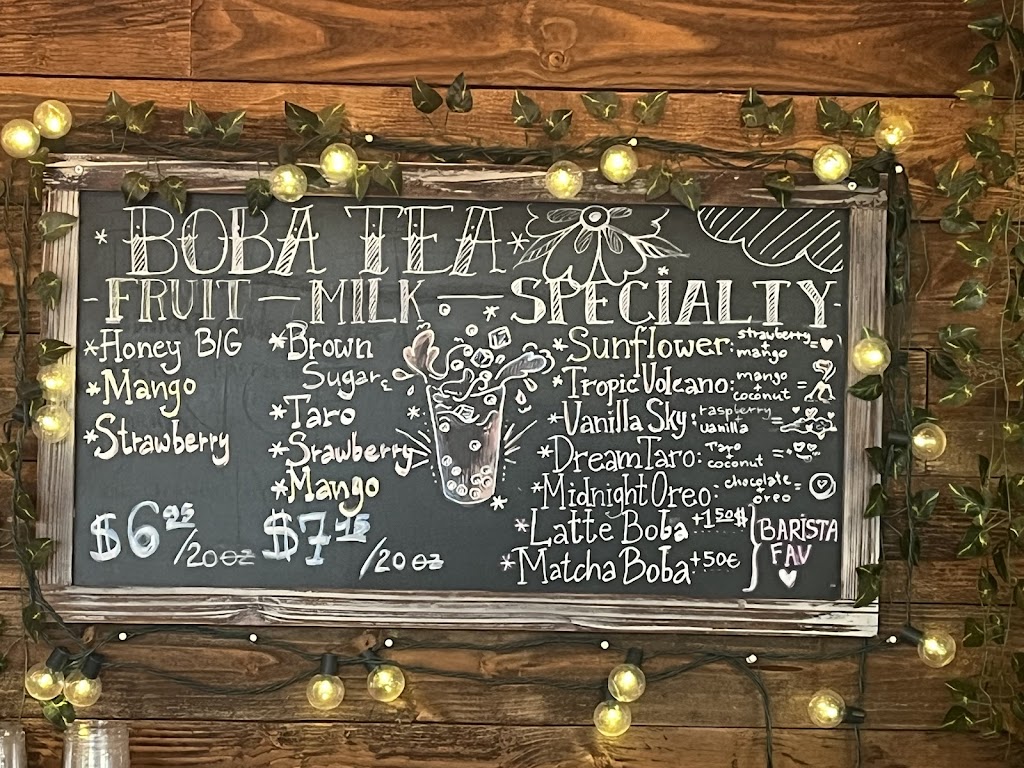 * BOBA TEA *
- FRUIT — MILK — SPECIALTY -
*Honey B/G
*Mango
*Strawberry
$6.95/20oz
*Brown
Sugar
*Taro
*Srawberry
*Mango
/20oz
*Sunflower: strawberry + mango =
*Tropic Volcano: mango + coconut =
*Vanilla Sky: raspberry + vanilla =
*Dream Taro: Taro + coconut =
*Midnight Oreo: chocolate + oreo =
*Latte Boba +1.50$
*Matcha Boba +50¢
BARISTA
FAV